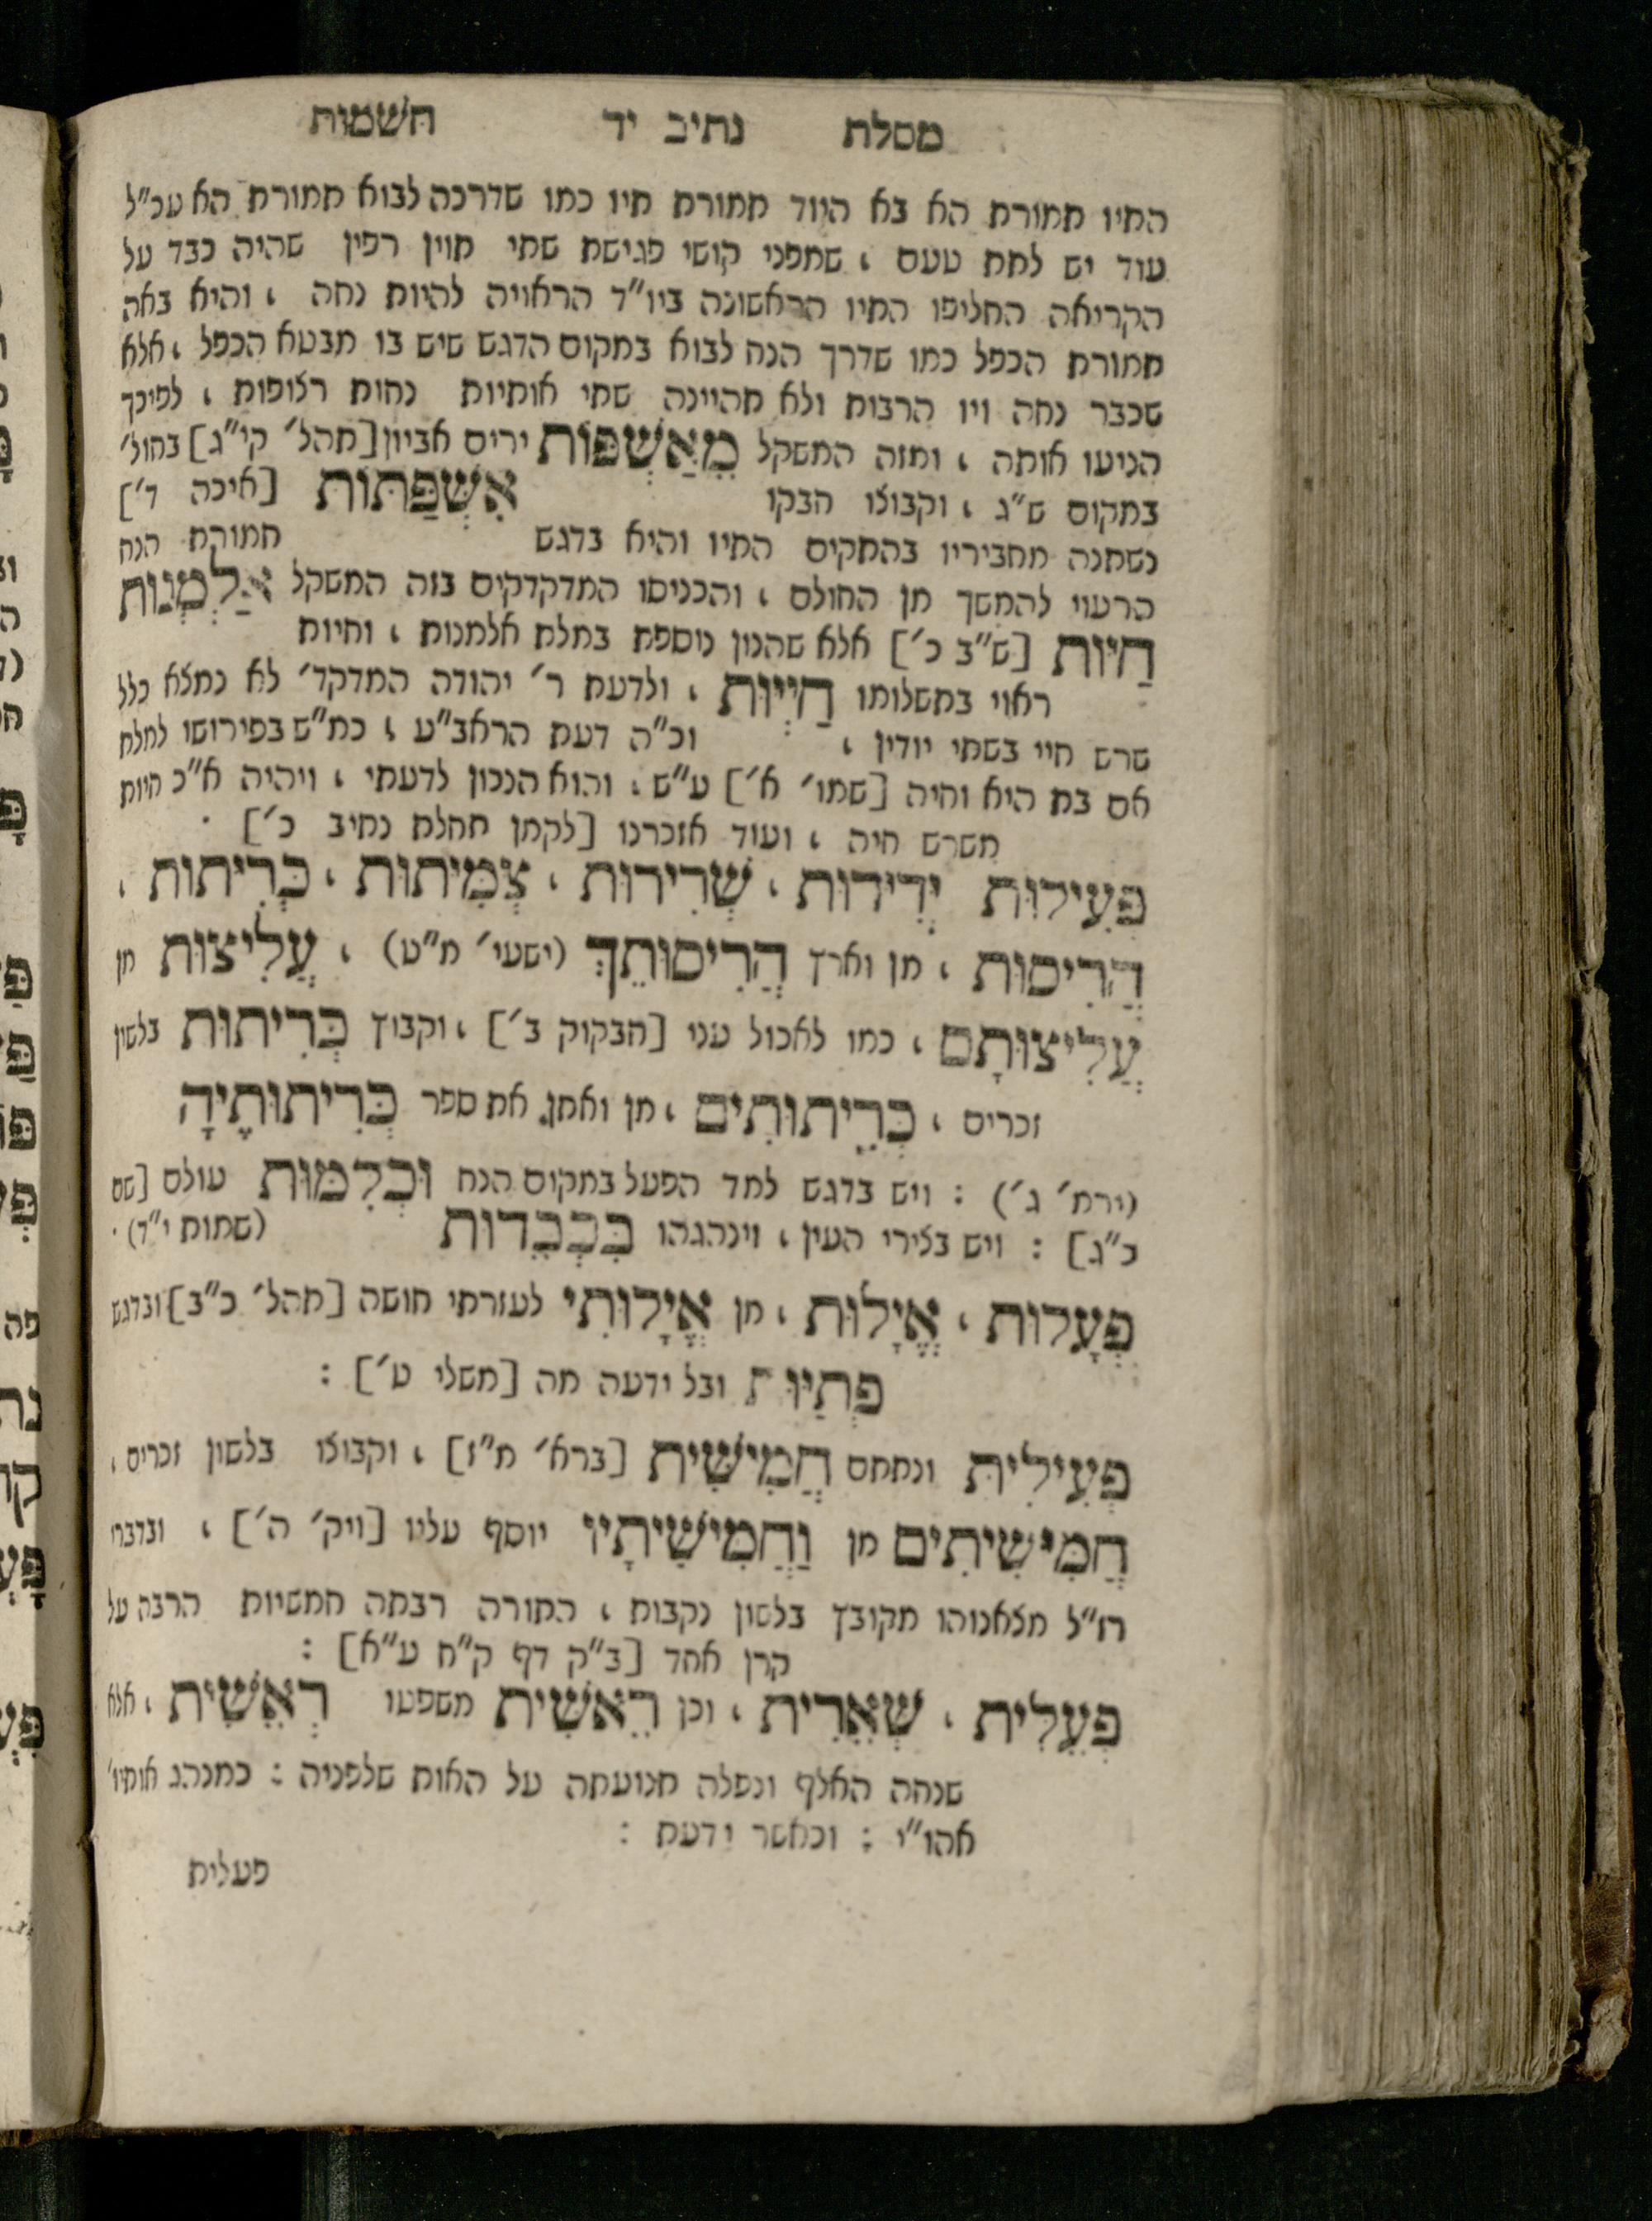 מסלת נתיב יד השמות
התיו תמורת הא בא היוד תמורת תיו כמו שדרכה לבוא תמורת הא עכ"ל
עוד יש לתת טעם , שמפני קושי פגישת שתי תוין רפין שהיה כבד על
הקריאה החליפו התיו הראשונה ביו"ד הראויה להיות נחה , והיא באה
תמורת הכפל כמו שדרך הנח לבוא במקום הדגש שיש בו מבטא הכפל , אלא
שכבר נחה ויו הרבות ולא תהיינה שתי אותיות נחות רצופות , לפיכך
הניעו אותה , ומזה המשקל מֵאַשְׁפּוֹת ירים אביון [תהל' קי"ג] בחול'
במקום ש"ג , וקבוצו הבקו אַשְׁפַּתּוֹת [איכה ד']
נשתנה מחביריו בהתקים התיו והיא בדגש תמורת הנח
הרעוי להמשך מן החולם , והכניסו המדקדקים בזה המשקל אַלְמְנוּת
חַיּוּת [ש"ב כ'] אלא שהנון נוספת במלת אלמנות , וחיות
ראוי בתשלומו חַיְיוּת , ולדעת ר' יהודה המדקד' לא נמצא כלל
שרש חיי בשתי יודין , וכ"ה דעת הראב"ע , כמ"ש בפירושו למלת
אם בת היא וחיה [שמו' א'] ע"ש , והוא הנכון לדעתי , ויהיה א"כ חיות
משרש חיה , ועוד אזכרנו [לקמן מחלת נתיב כ'] .
פְּעִילוּת יְדִידוּת , שְׁרִירוּת , צְמִיתוּת , כְּרִיתוּת ,
הֲרִיסוּת , מן וארץ הֲרִיסוּתֵךְ (ישעי' מ"ט) , עֲלִיצוּת מן
עֲלִיצוּתָם , כמו לאכול עני [חבקוק ב'] , וקבוץ כְּרִיתוּת בלשון
זכרים , כְּרִיתוּתִים , מן ואתן את ספר כְּרִיתוּתֶיהָ
(ירמ' ג') : ויש בדגש למד הפעל במקום הנח וּכְלִמּוּת עולם [שם
כ"ג] : ויש בצירי העין , וינהגהו בִּכְבֵדוּת (שמות י"ד) .
פְּעָלוּת , אֱיָלוּת , מן אֱיָלוּתִי לעזרתי חושה [תהל' כ"ב] ובדגש
פְּתַיּוּת ובל ידעה מה [משלי ט'] :
פְּעִילִית ונחתם חֲמִישִׁית [ברא' מ"ז] , וקבוצו בלשון זכרים ,
חֲמִישִׁתִים מן וַחֲמִישִׁתָיו יוסף עליו [ויק' ה'] , ובדברי
רז"ל מצאנוהו מקובץ בלשון נקבות , התורה רבתה חמשיות הרבה על
קרן אחד [ב"ק דף ק"ח ע"א] :
פְּעֵלִית , שְׁאֵרִית , וכן רֵאשִׁית משפטו רְאֵשִׁית , אלא
שנחה האלף ונפלה תנועתה על האות שלפניה : כמנהג אותיו'
אהו"י : וכאשר ידעת :
פעלית